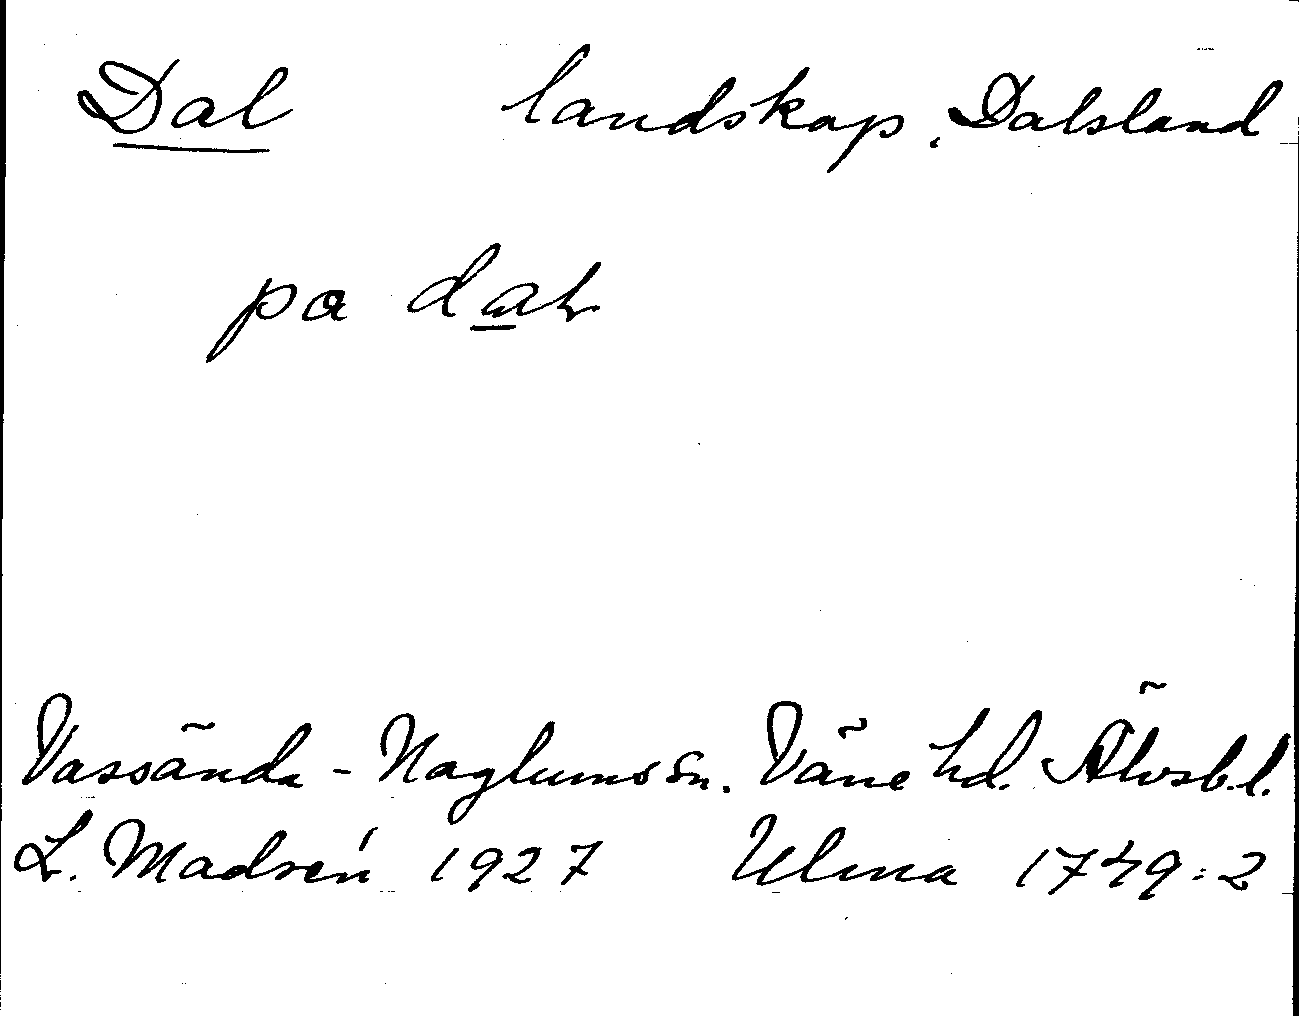 Dal landskap, Dalsland
pa dal
Vassända-Naglums sn. Väne hd. Älvsb.l.
L. Madsén 1927 Ulma 1749:2